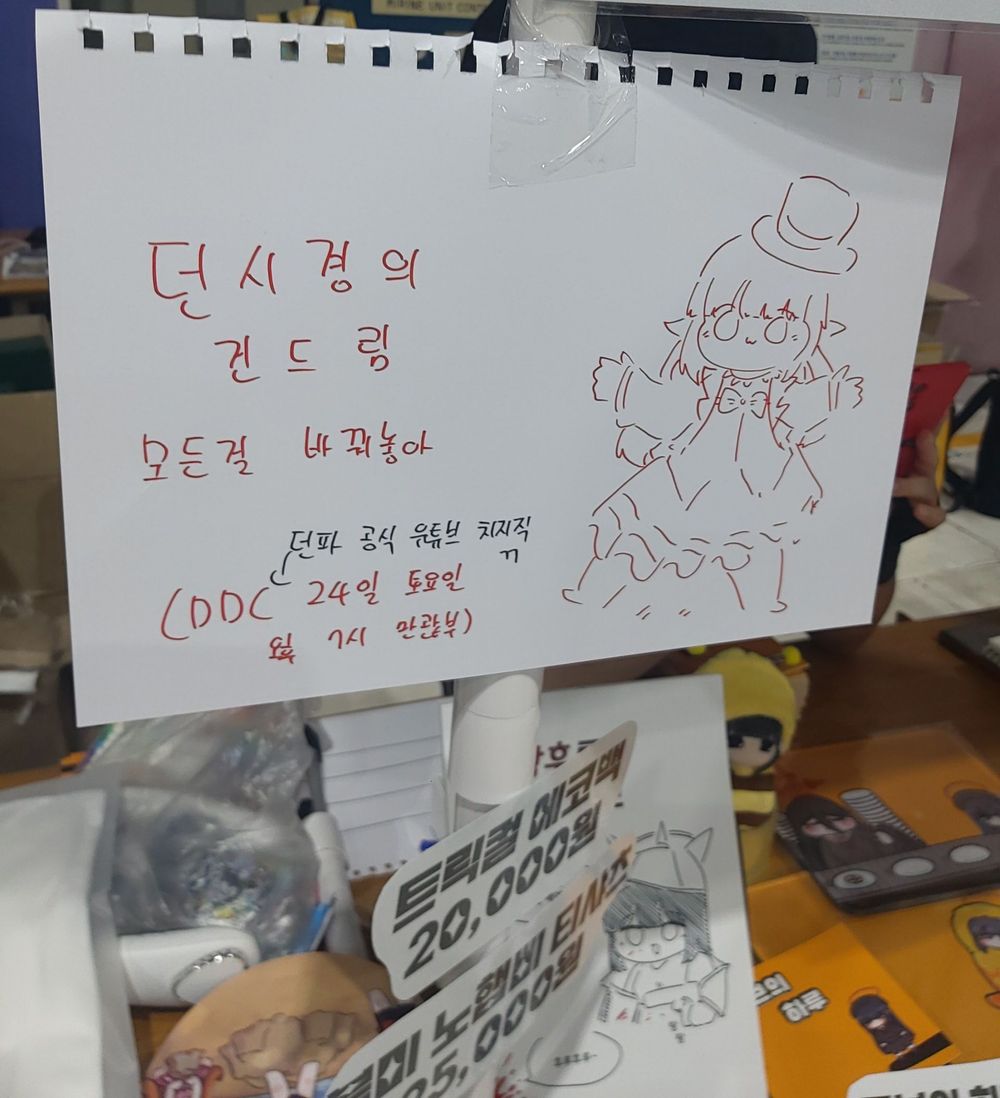 던시경의
건드림
모든걸 바꿔놓아
던파 공식 유튜브 치지직
(DDC 24일 토요일
오후 7시 만관부)
트릭컬 에코백
20,000원
노햄비 티셔츠
25,000원
하루